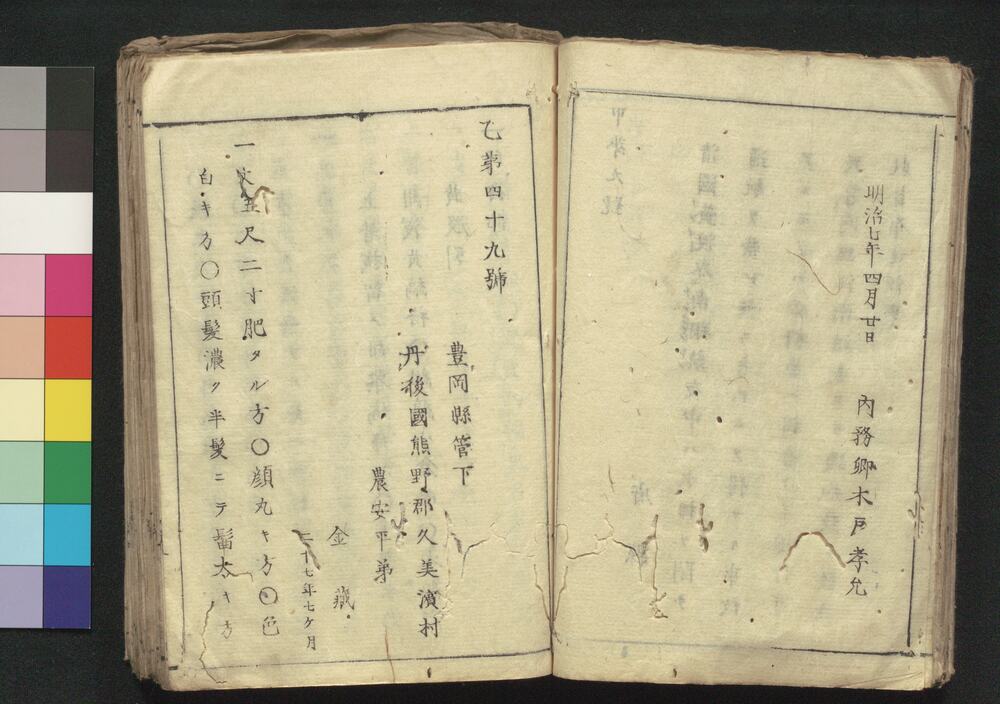 明治七年四月廿日　内務卿木戸孝允
乙第四十九號
豊岡縣管下
丹後國熊野郡久美濱村
農安平弟
金藏
二十七年七ケ月
一丈五尺二寸肥タル方〇顔丸キ方〇色
白キ方〇頭髪濃ク半髪ニテ髷太キ方